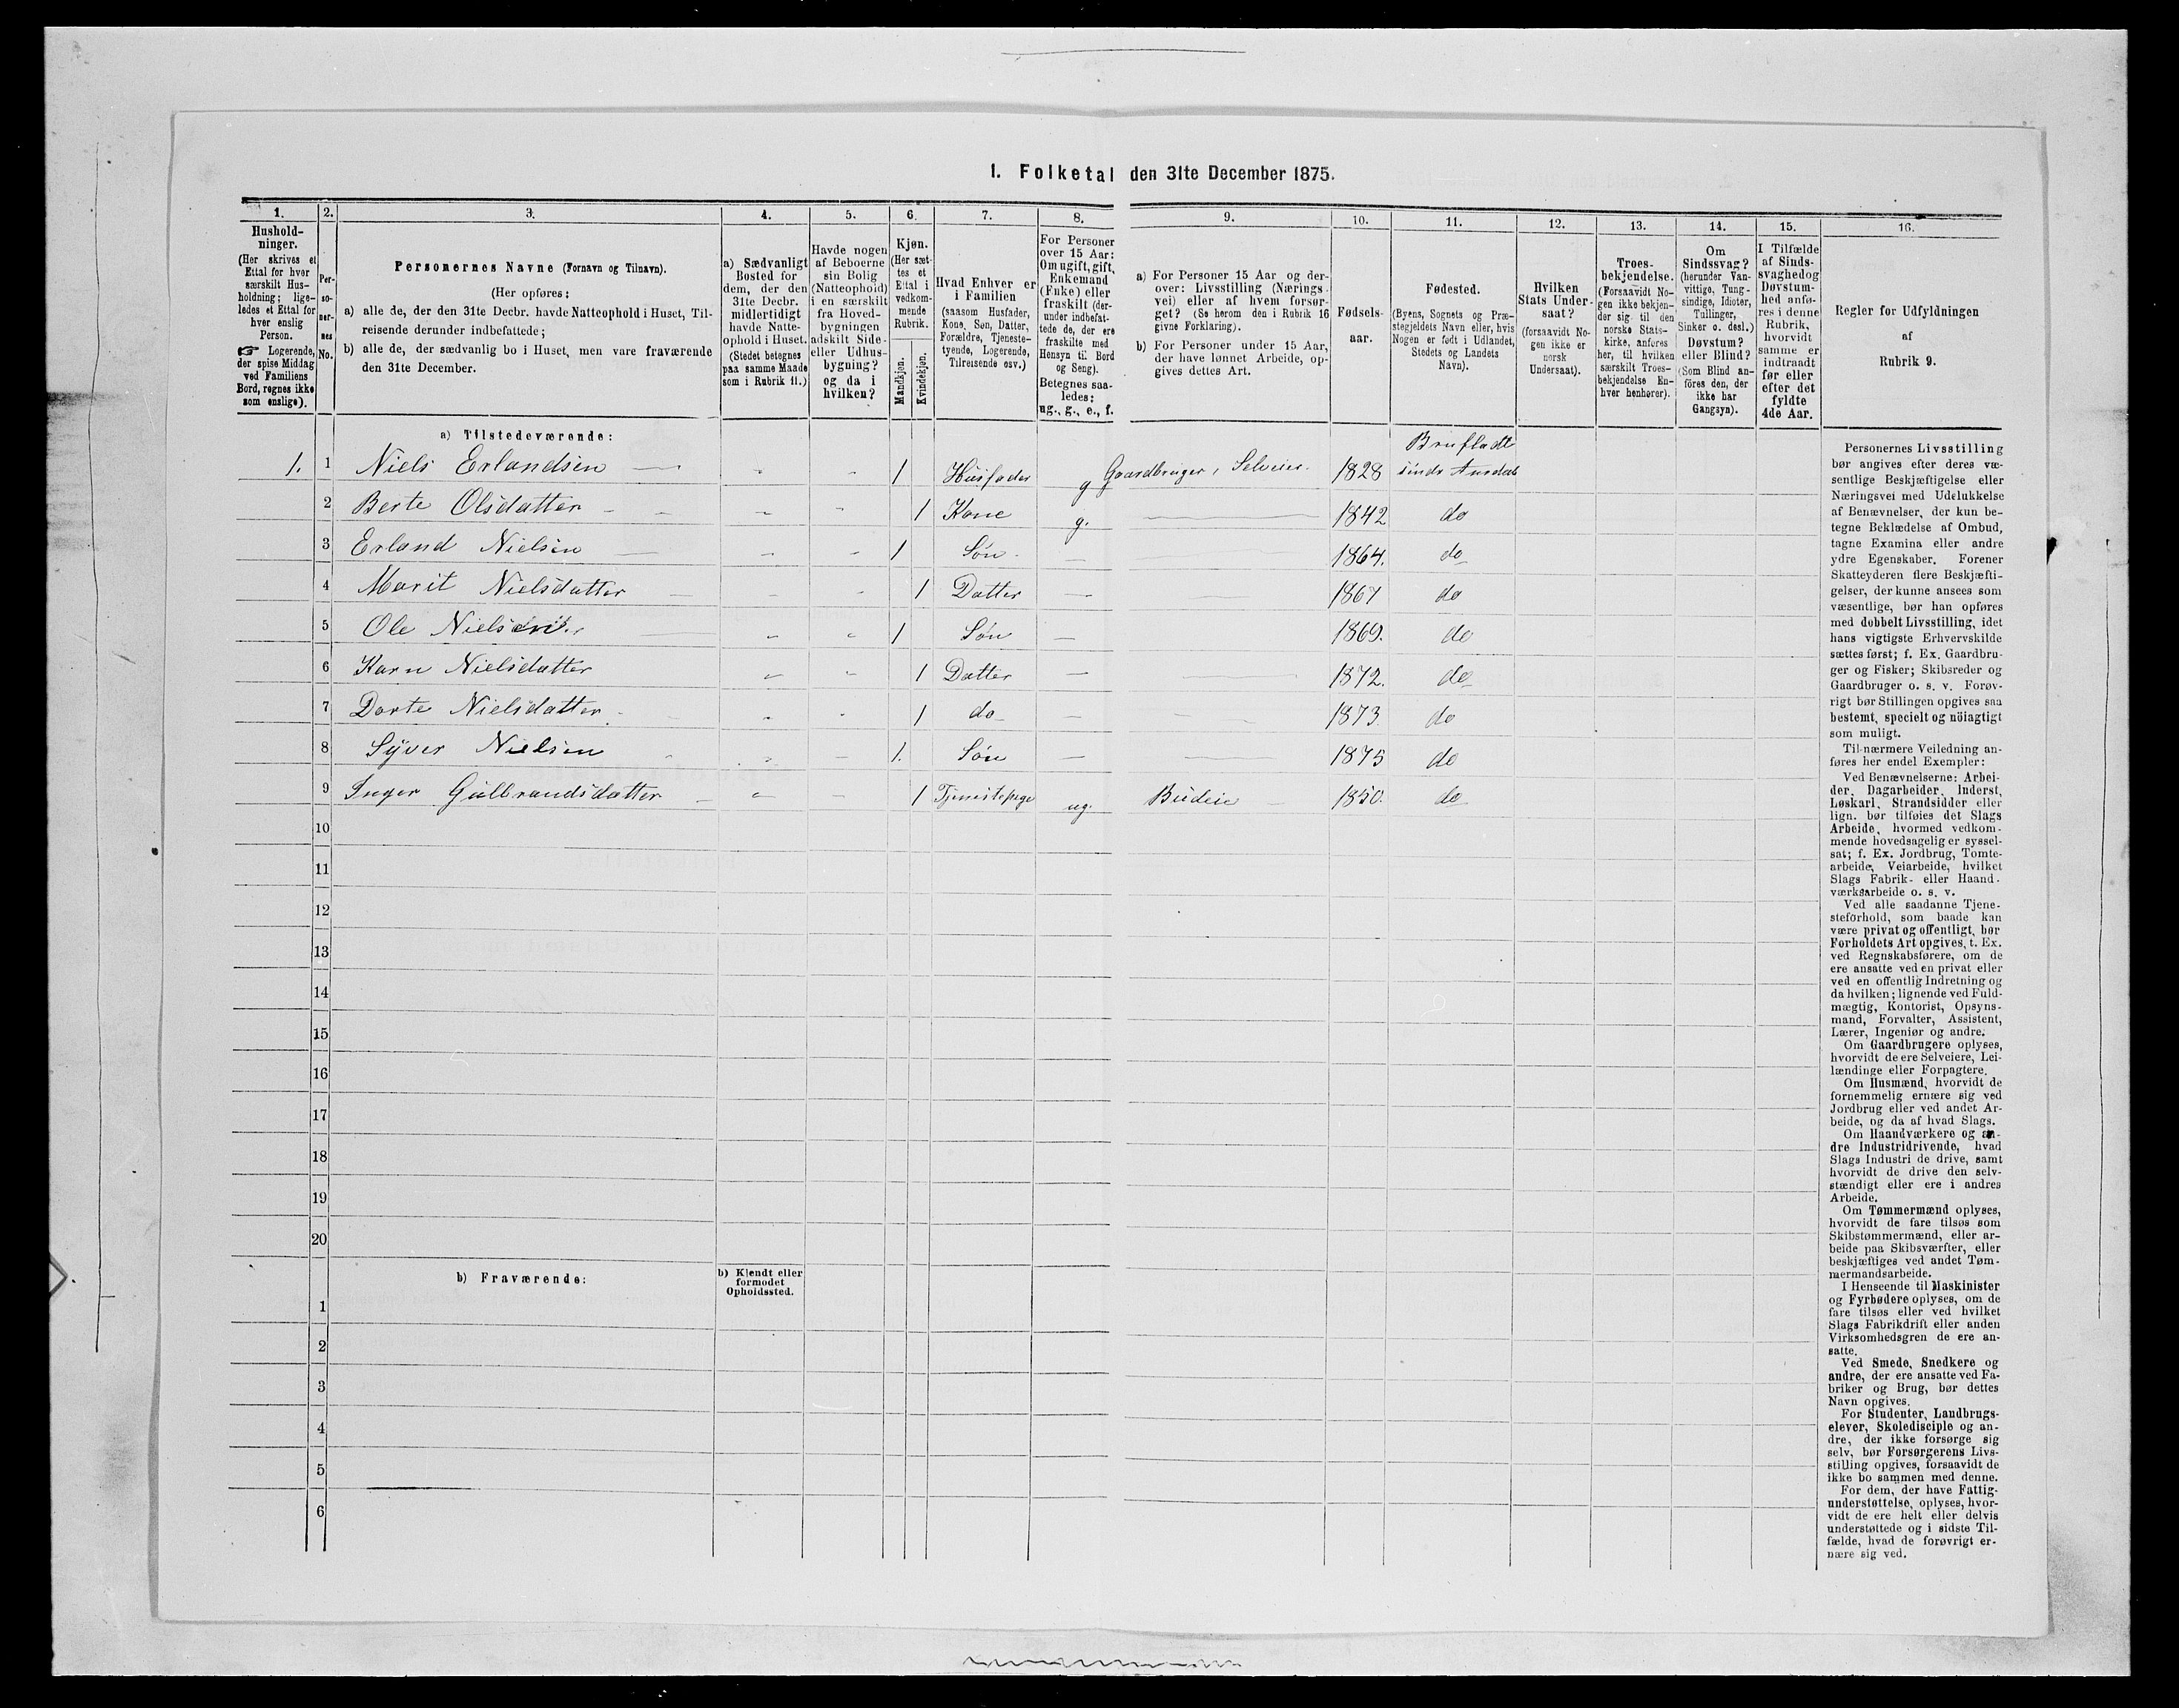 1. Folketal den 31te December 1875.
1. 2. 3. 4. 5. 6. 7. 8. 9. 10. 11. 12. 13. 14. 15. 16.
Hushold-
ninger.
(Her skrives et
Ettal for hver
særskilt Hus-
holdning; lige-
ledes et Ettal for
hver enslig
Person.
☞ Logerende,
der spise Middag
ved Familiens
Bord, regnes ikke
som enslige).
Per-
so-
ner-
nes
No.
Personernes Navne (Fornavn og Tilnavn).
(Her opføres:
a) alle de, der den 31te Decbr. havde Natteophold i Huset, Til-
reisende derunder indbefattede;
b) alle de, der sædvanlig bo i Huset, men vare fraværende
den 31te December.
a) Sædvanligt
Bosted for
dem, der den
31te Decbr.
midlertidigt
havde Natte-
ophold i Huset.
(Stedet betegnes
paa samme Maade
som i Rubrik 11.)
Havde nogen
af Beboerne
sin Bolig
(Natteophold)
i en særskilt
fra Hoved-
bygningen
adskilt Side-
eller Udhus-
bygning?
og da i
hvilken?
Kjøn.
(Her sæt-
tes et
Ettal i
vedkom-
mende
Rubrik.
Mandkjøn.
Kvindekjøn.
Hvad Enhver er
i Familien
(saasom Husfader,
Kone, Søn, Datter,
Forældre, Tjeneste-
tyende, Logerende,
Tilreisende osv.)
For Personer
over 15 Aar:
Om ugift, gift,
Enkemand
(Enke) eller
fraskilt (der-
under indbefat-
tede de, der ere
fraskilte med
Hensyn til Bord
og Seng).
Betegnes saa-
ledes:
ug., g., e., f.
a) For Personer 15 Aar og der-
over: Livsstilling (Nærings-
vei) eller af hvem forsør-
get? (Se herom den i Rubrik 16
givne Forklaring).
b) For Personer under 15 Aar,
der have lønnet Arbeide, op-
gives dettes Art.
Fødsels-
aar.
Fødested.
(Byens, Sognets og Præ-
stegjeldets Navn eller, hvis
Nogen er født i Udlandet,
Stedets og Landets
Navn).
Hvilken
Stats Under-
saat?
(forsaavidt No-
gen ikke er
norsk
Undersaat).
Troes-
bekjendelse.
(Forsaavidt No-
gen ikke bekjen-
der sig til den
norske Stats-
kirke, anføres
her, til hvilken
særskilt Troes-
bekjendelse En-
hver henhører).
Om
Sindssvag?
(herunder Van-
vittige, Tung-
sindige, Idioter,
Tullinger,
Sinker o. desl.)
Døvstum?
eller Blind?
(Som Blind an-
föres den, der
ikke har
Gangsyn).
I Tilfælde
af Sinds-
svaghed og
Døvstum-
hed anfø-
res i denne
Rubrik,
hvorvidt
samme er
indtraadt
før eller
efter det
fyldte
4de Aar.
Regler for Udfyldningen
af
Rubrik 9.
a) Tilstedeværende:
1. 1 Niels Erlandsen 1 Husfader g Gaardbruger, Selveier. 1828 Brufladt
søndr Aurdal
2 Berte Olsdatter 1 Kone g. 1842 do
3 Erland Nielsen 1 Søn 1864. do
4 Marit Nielsdatter 1 Datter 1867 do
5 Ole Nielsen 1 Søn 1869. do
6 Karn Nielsdatter 1 Datter 1872. do
7 Dorte Nielsdatter 1 do 1873. do
8 Syver Nielsen 1. Søn 1875 do
9 Inger Gulbrandsdatter 1 Tjenestepige ug. Budeie 1850. do
10
11
12
13
14
15
16
17
18
19
20
b) Fraværende:
b) Kjendt eller
formodet
Opholdssted.
1
2
3
4
5
6
Personernes Livsstilling
bør angives efter deres væ-
sentlige Beskjæftigelse eller
Næringsvei med Udelukkelse
af Benævnelser, der kun be-
tegne Beklædelse af Ombud,
tagne Examina eller andre
ydre Egenskaber. Forener
Skatteyderen flere Beskjæfti-
gelser, der kunne ansees som
væsentlige, bør han opføres
med dobbelt Livsstilling, idet
hans vigtigste Erhvervskilde
sættes først; f. Ex. Gaardbru-
ger og Fisker; Skibsreder og
Gaardbruger o. s. v. Forøv-
rigt bør Stillingen opgives saa
bestemt, specielt og nöiagtigt
som muligt.
Til nærmere Veiledning an-
føres her endel Exempler:
Ved Benævnelserne: Arbei-
der, Dagarbeider, Inderst,
Løskarl, Strandsidder eller
lign. bør tilføies det Slags
Arbeide, hvormed vedkom-
mende hovedsagelig er syssel-
sat; f. Ex. Jordbrug, Tomte-
arbeide, Veiarbeide, hvilket
Slags Fabrik- eller Haand-
værksarbeide o. s. v.
Ved alle saadanne Tjene-
steforhold, som baade kan
være privat og offentligt, bør
Forholdets Art opgives, t. Ex.
ved Regnskabsførere, om de
ere ansatte ved en privat eller
ved en offentlig Indretning og
da hvilken; lignende ved Fuld-
mægtig, Kontorist, Opsyns-
mand, Forvalter, Assistent,
Lærer, Ingeniør og andre.
Om Gaardbrugere oplyses,
hvorvidt de ere Selveiere, Lei-
lændinge eller Forpagtere.
Om Husmænd, hvorvidt de
fornemmelig ernære sig ved
Jordbrug eller ved andet Ar-
beide, og da af hvad Slags.
Om Haandværkere og an-
dre Industridrivende, hvad
Slags Industri de drive, samt
hvorvidt de drive den selv-
stændigt eller ere i andres
Arbeide.
Om Tømmermænd oplyses,
hvorvidt de fare tilsøs som
Skibstømmermænd, eller ar-
beide paa Skibsværfter, eller
beskjæftiges ved andet Tøm-
mermandsarbeide.
I Henseende til Maskinister
og Fyrbødere oplyses, om de
fare tilsøs eller ved hvilket
Slags Fabrikdrift eller anden
Virksomhedsgren de ere an-
satte.
Ved Smede, Snedkere og
andre, der ere ansatte ved Fa-
briker og Brug, bør dettes
Navn opgives.
For Studenter, Landbrugs-
elever, Skoledisciple og an-
dre, der ikke forsørge sig
selv, bør Forsørgerens Livs-
stilling opgives, forsaavidt de
ikke bo sammen med denne.
For dem, der have Fattig-
understøttelse, oplyses, hvor-
vidt de ere helt eller delvis
understøttede og i sidste Til-
fælde, hvad de forøvrigt er-
nære sig ved.